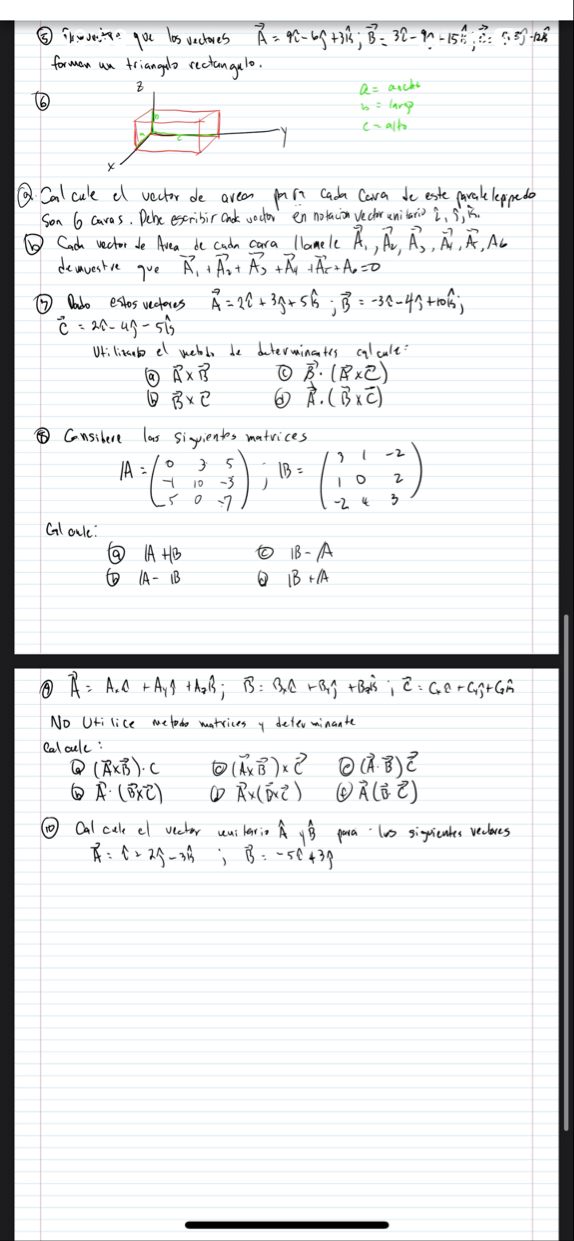 ⑤ que los vectores A⃗ = 9î - 6ĵ + 3k̂ ; B⃗ = 3î - 9ĵ - 15k̂ ;
forman un triangulo rectangulo.
⑥
z
y
x
a
b
c
a = ancho
b = largo
c = alto
ⓐ Calcule el vector de area para cada cara de este paralelepipedo
Son 6 caras. Debe escribir cada vector en notación vector unitario î, ĵ, k̂.
ⓑ Cada vector de Area de cada cara llamele A⃗₁, A⃗₂, A⃗₃, A⃗₄, A⃗₅, A₆
demuestre que A⃗₁ + A⃗₂ + A⃗₃ + A⃗₄ + A⃗₅ + A₆ = 0
⑦ Dado estos vectores A⃗ = 2î + 3ĵ + 5k̂ ; B⃗ = -3î - 4ĵ + 10k̂ ;
C⃗ = 2î - 4ĵ - 5k̂
Utilizando el metodo de determinantes calcule:
ⓐ A⃗ x B⃗ ⓒ B⃗ · (A⃗ x C⃗)
ⓑ B⃗ x C⃗ ⓓ A⃗ · (B⃗ x C⃗)
⑧ Considere las siguientes matrices
A = (0 3 5
-1 10 -3
-5 0 -7) ; B = (3 1 -2
1 0 2
-2 4 3)
Calcule:
ⓐ A + B ⓒ B - A
ⓑ A - B ⓓ B + A
⑨ A⃗ = Aₓî + Aᵧĵ + A_zk̂ ; B⃗ = Bₓî + Bᵧĵ + B_zk̂ ; C⃗ = Cₓî + Cᵧĵ + C_zk̂
No Utilice metodo matrices y determinante
Calcule:
ⓐ (A⃗xB⃗)·C ⓒ (A⃗xB⃗)xC⃗ ⓔ (A⃗·B⃗)C⃗
ⓑ A⃗·(B⃗xC⃗) ⓓ A⃗x(B⃗xC⃗) ⓕ A⃗(B⃗·C⃗)
⑩ Calcule el vector unitario Â y B̂ para los siguientes vectores
A⃗ = î + 2ĵ - 3k̂ ; B⃗ = -5î + 3ĵ